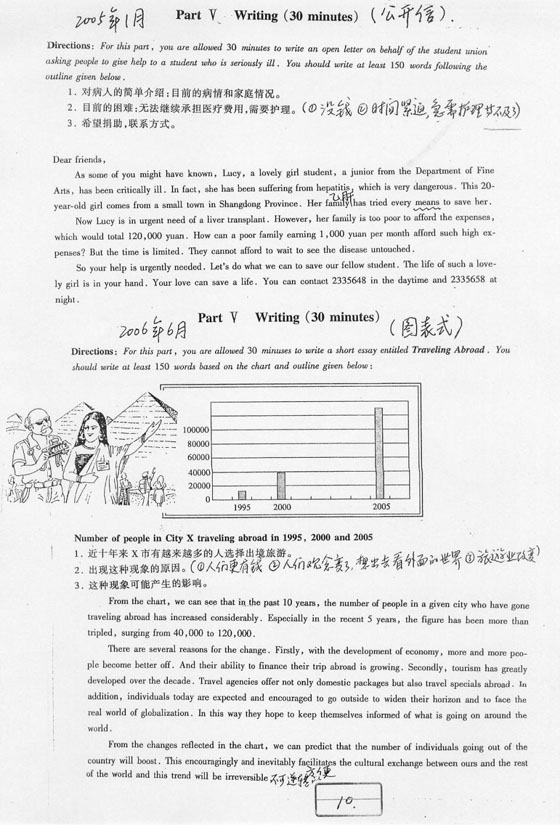 2005年1月 Part Ⅴ Writing (30 minutes) (公开信).
Directions: For this part, you are allowed 30 minutes to write an open letter on behalf of the student union
asking people to give help to a student who is seriously ill. You should write at least 150 words following the
outline given below.
1. 对病人的简单介绍:目前的病情和家庭情况。
2. 目前的困难:无法继续承担医疗费用,需要护理。(①没钱 ②时间紧迫,急需护理等不及了)
3. 希望捐助,联系方式。
Dear friends,
As some of you might have known, Lucy, a lovely girl student, a junior from the Department of Fine
Arts, has been critically ill. In fact, she has been suffering from hepatitis, which is very dangerous. This 20-
year-old girl comes from a small town in Shangdong Province. Her family has tried every means to save her.
Now Lucy is in urgent need of a liver transplant. However, her family is too poor to afford the expenses,
which would total 120,000 yuan. How can a poor family earning 1,000 yuan per month afford such high ex-
penses? But the time is limited. They cannot afford to wait to see the disease untouched.
So your help is urgently needed. Let's do what we can to save our fellow student. The life of such a love-
ly girl is in your hand. Your love can save a life. You can contact 2335648 in the daytime and 2335658 at
night.
2006年6月 Part Ⅴ Writing (30 minutes) (图表式)
Directions: For this part, you are allowed 30 minuses to write a short essay entitled Traveling Abroad. You
should write at least 150 words based on the chart and outline given below:
100000
80000
60000
40000
20000
0
1995 2000 2005
Number of people in City X traveling abroad in 1995, 2000 and 2005
1. 近十年来X市有越来越多的人选择出境旅游。
2. 出现这种现象的原因。(①人们更有钱 ②人们观念变了,想出去看外面的世界 ③旅游业改变)
3. 这种现象可能产生的影响。
From the chart, we can see that in the past 10 years, the number of people in a given city who have gone
traveling abroad has increased considerably. Especially in the recent 5 years, the figure has been more than
tripled, surging from 40,000 to 120,000.
There are several reasons for the change. Firstly, with the development of economy, more and more peo-
ple become better off. And their ability to finance their trip abroad is growing. Secondly, tourism has greatly
developed over the decade. Travel agencies offer not only domestic packages but also travel specials abroad. In
addition, individuals today are expected and encouraged to go outside to widen their horizon and to face the
real world of globalization. In this way they hope to keep themselves informed of what is going on around the
world.
From the changes reflected in the chart, we can predict that the number of individuals going out of the
country will boost. This encouragingly and inevitably facilitates the cultural exchange between ours and the rest
of the world and this trend will be irreversible 不可逆转
10.